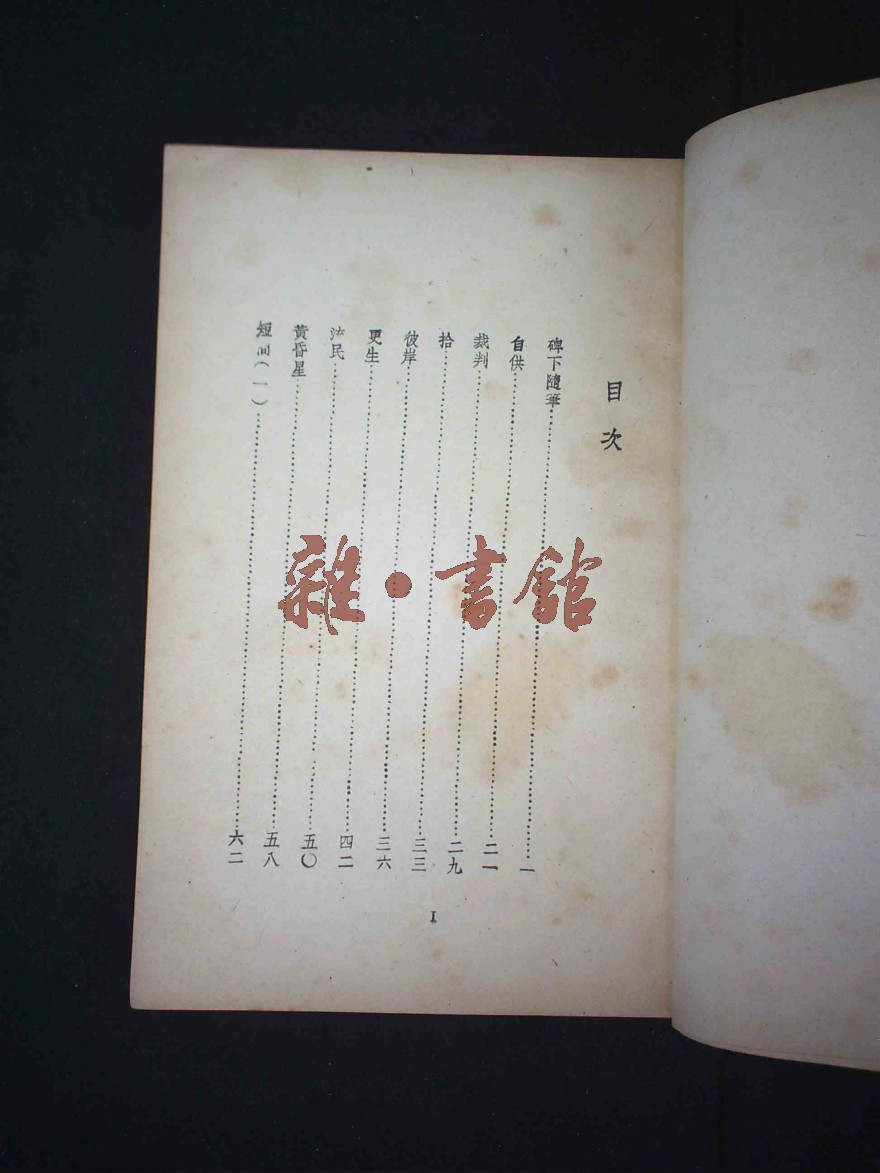 目次
碑下隨筆……一
自供……二一
裁判……二九
拾……三三
彼岸……三六
更生……四二
流民……五〇
黃昏星……五八
短簡(一)……六二
I
雜·書館